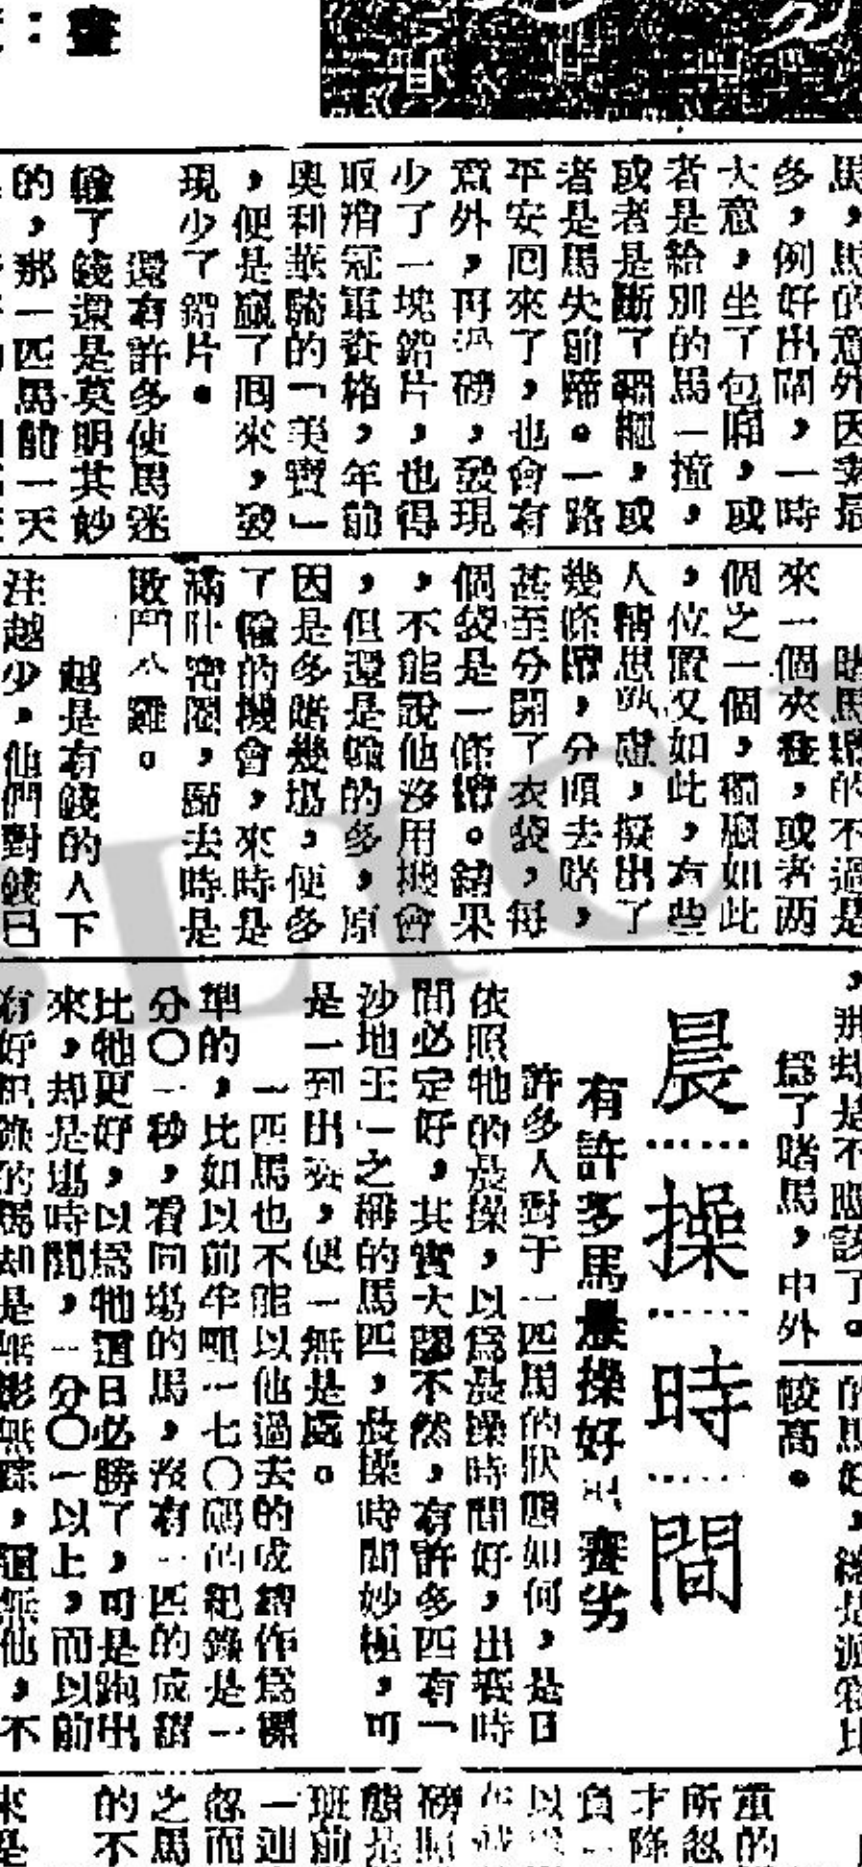 畫：
馬，馬的意外因素最
多，例好出閘，一時
大意，坐了包廂，或
者是給別的馬一撞，
或者是斷了韁繩，或
者是馬失前蹄。一路
平安回來了，也會有
意外，再過磅，發現
少了一塊鉛片，也得
取消冠軍資格，年前
奧利華騎的「美寶」
，便是贏了回來，發
現少了鉛片。
還有許多使馬迷
輸了錢還是莫明其妙
的，那一匹馬前一天
賭馬的不過是
來一個夾，或者两
個之一個，獨如此
，位置又如此，有些
人精思熟慮，擬出了
幾條，分頭去賭，
甚至分開了衣袋，每
個袋是一條。結果
，不能說他沒用機會
，但還是輸的多，原
因是多賭幾場，便多
了輸的機會，來時是
滿肚密圈，歸去時是
敗鬥公雞。
越是有錢的人下
注越少，他們對錢已
，那却是不應該了。
爲了賭馬，中外
較高。
晨操時間
有許多馬晨操好出賽劣
許多人對于一匹馬的狀態如何，是日
依照牠的晨操，以爲晨操時間好，出賽時
間必定好，其實大謬不然，有許多匹有「
沙地王」之稱的馬匹，晨操時間妙極，可
是一到出賽，便一無是處。
一匹馬也不能以他過去的成績作爲標
準的，比如以前半哩一七〇碼的紀錄是一
分〇一秒，看同場的馬，沒有一匹的成績
比牠更好，以爲牠這日必勝了，可是跑出
來，却是場時間，一分〇一以上，而以前
有好紀錄的馬却是無影無踪，這無他，不
重的
所忽
才降
負一
以
磅
態是
班前
一
忽而
之馬
的不
來是